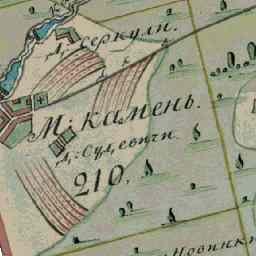 Д: Серкули.
М: камень.
Д: Судевичи
210.
Новинки